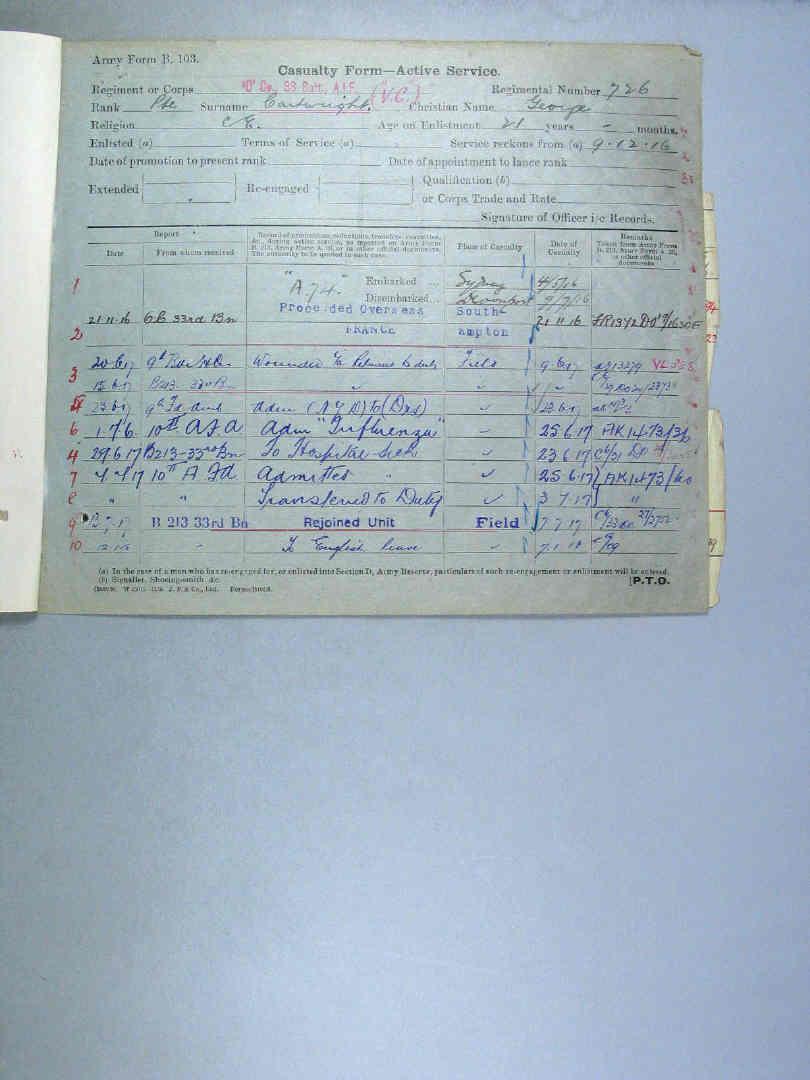 Army Form B. 103.
Casualty Form—Active Service.
Regiment or Corps "D" Co., 33 Batt., A.I.F. (V.C.) Regimental Number 726
Rank Pte Surname Cartwright. Christian Name George
Religion C.E. Age on Enlistment 21 years - months.
Enlisted (a) Terms of Service (a) Service reckons from (a) 9.12.16
Date of promotion to present rank Date of appointment to lance rank
Extended Re-engaged Qualification (b)
or Corps Trade and Rate
Signature of Officer i/c Records.
Report Record of promotions, reductions, transfers, casualties, &c., during active service, as reported on Army Form B. 213, Army Form A. 36, or in other official documents. The authority to be quoted in each case. Place of Casualty Date of Casualty Remarks Taken from Army Form B. 213, Army Form A. 36, or other official documents
Date From whom received
1 "A 74." Embarked ... Sydney 4/5/16
Disembarked ... Devonport 9/7/16
21 11 16 O.C. 33rd Bn Proceeded Overseas South-
2 FRANCE ampton 21 11 16
3 20.6.17 Wounded Returned to duty Field 9.6.17
33rd Bn
23.6.17 9th Fd Amb Adm (N Y D) To (Drs) 23.6.17
6 1.7.6 10th A.F.A Adm "Influenza" 25 6.17 AK1473/3
4 29.6.17 B213-33rd Bn To Hospital sick 23 6.17
7 4 4 17 10th A Fd Admitted " 25 6.17 AK1473/60
8 " " Transferred to Duty 3 7.17 "
9 B 213 33rd Bn Rejoined Unit Field 7 7 17
10 To English leave 7.1.18
(a) In the case of a man who has re-engaged for, or enlisted into Section D, Army Reserve, particulars of such re-engagement or enlistment will be entered.
(b) Signaller, Shoeing-smith &c.
[P.T.O.